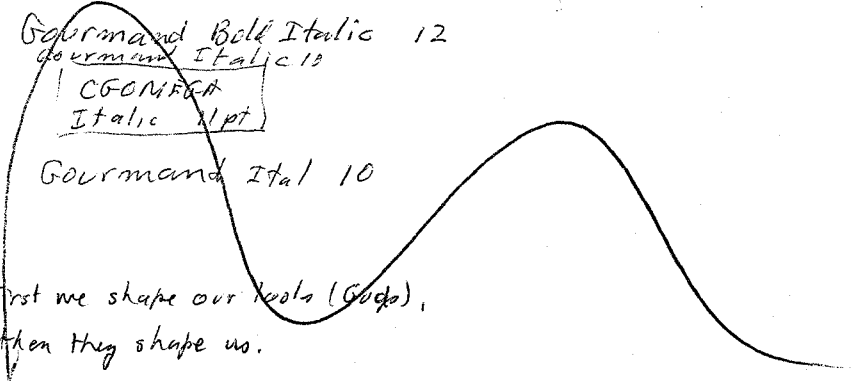 Gourmand Bold Italic 12
Gourmand Italic 10
CGOMEGA
Italic 11pt
Gourmand Ital 10
rst we shape our tools
then they shape us.